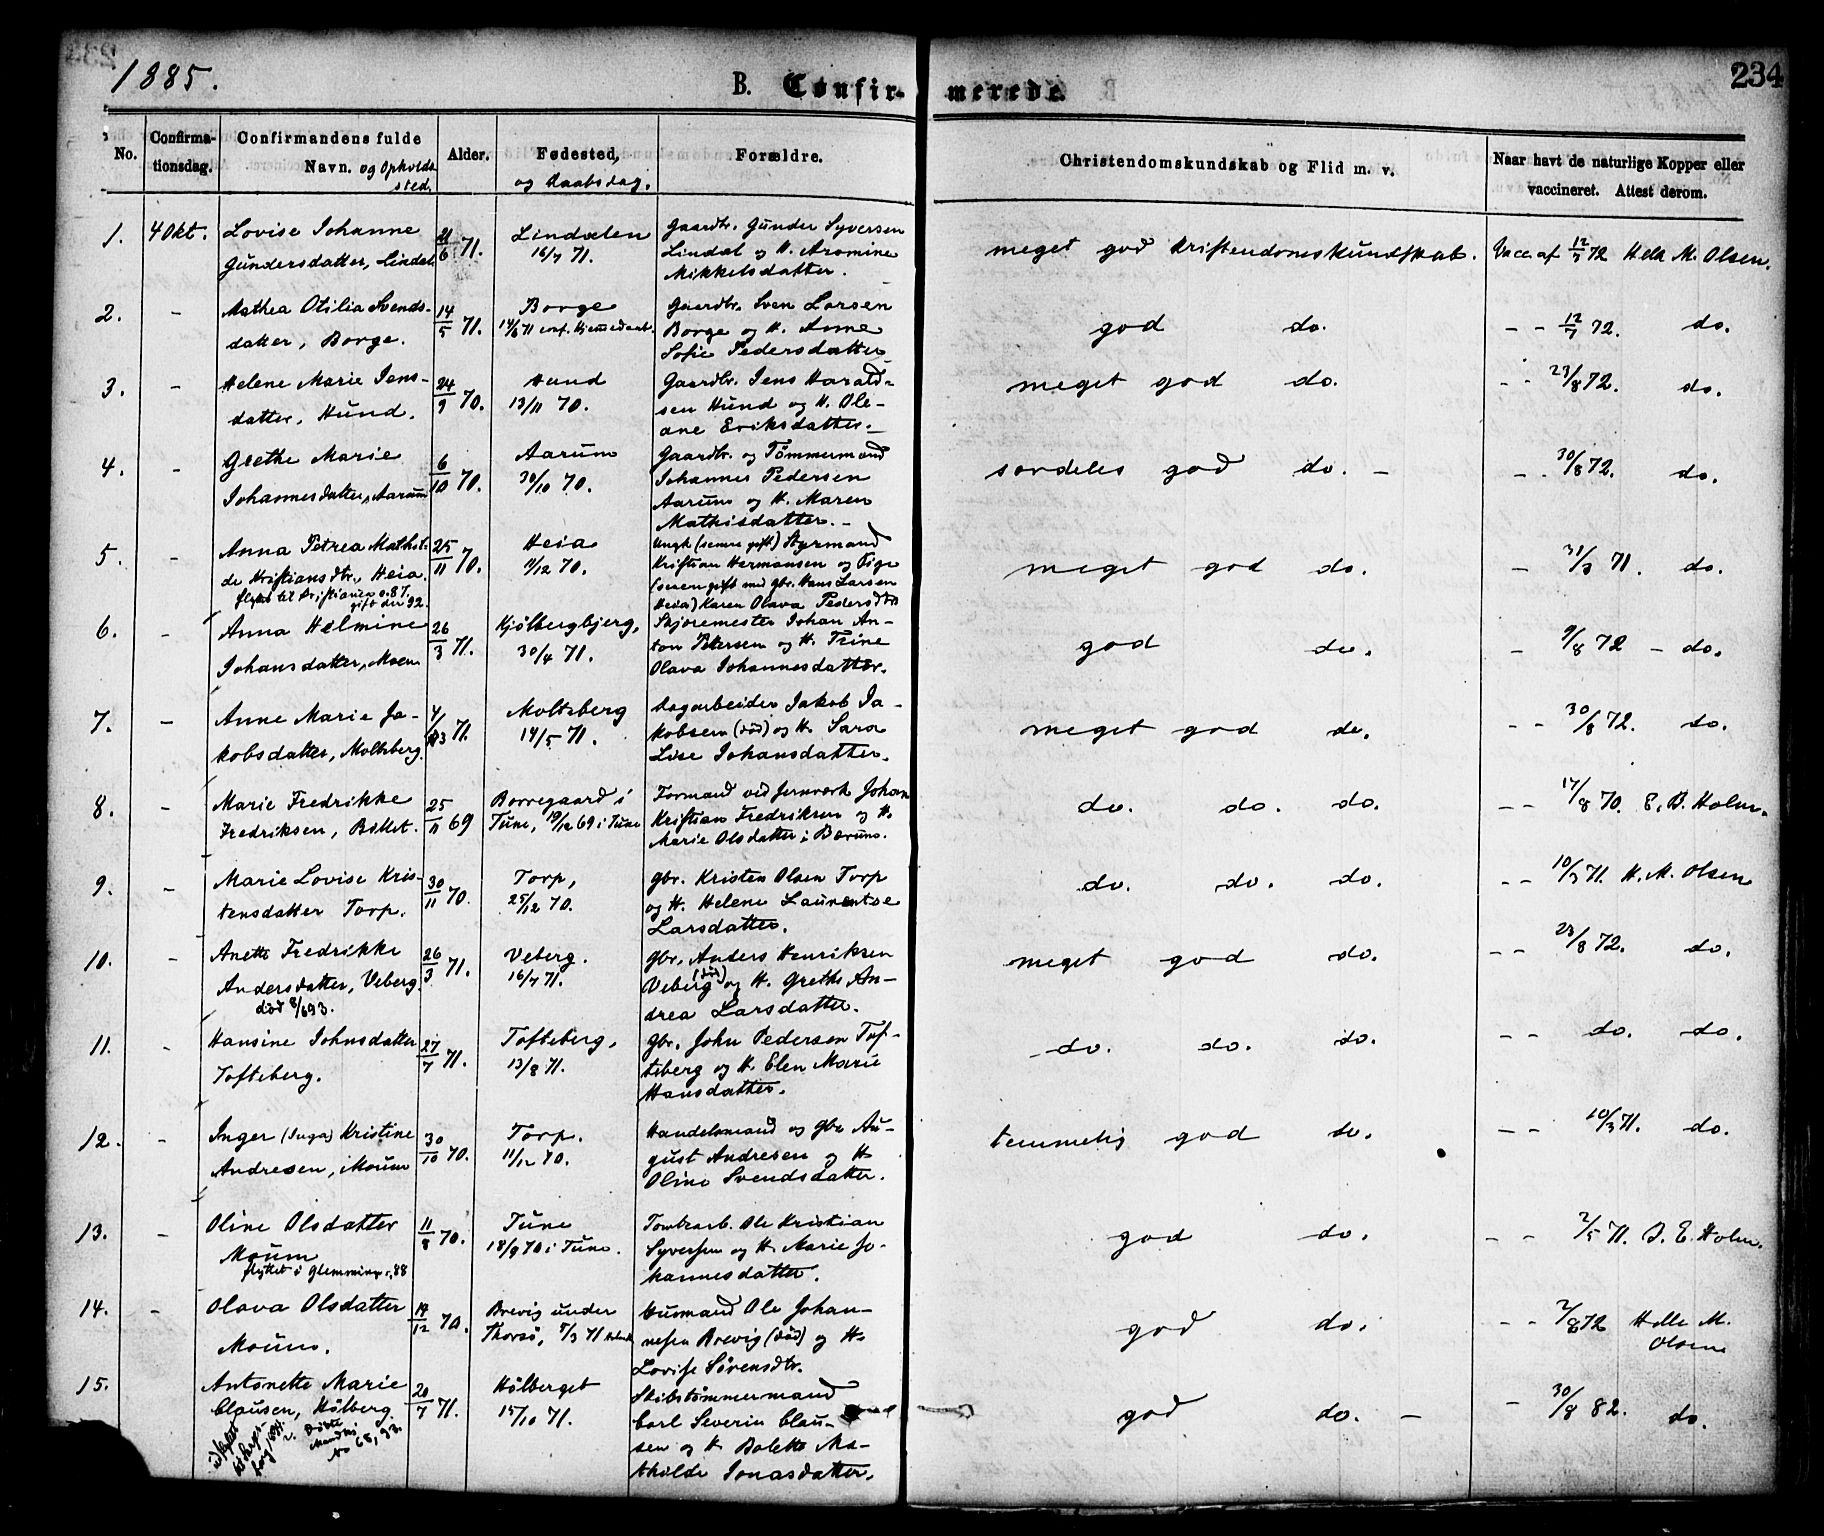 1885.
B. Confirmerede.
234
No.
Confirmationsdag.
Confirmandens fulde Navn. og Opholdssted.
Alder.
Fødested, og Daabsdag.
Forældre.
Christendomskundskab og Flid m. v.
Naar havt de naturlige Kopper eller vaccineret. Attest derom.
1. 4 Okt. Lovise Johanne 21/6 71. Lindalen Gaardbr. Gunder Syversen
Gundersdatter, Lindal 16/7 71. Lindal og H. Aromine
Mikkelsdatter.
meget god Kristendomskundskab. Vacc. af 12/7 72 Helle M. Olsen.
2. – Mathea Otilia Svends- 14/5 71. Borge Gaardbr. Sven Larsen
datter, Borge. 14/6 71 Hjemmedaab. Borge og H. Anne
Sofie Pedersdatter
god do. – – 12/7 72. do.
3. – Helene Marie Jens- 24/9 70. Hund Gaardbr. Jens Harald-
datter, Hund. 13/11 70. sen Hund og H. Ole-
ane Eriksdatter.
meget god do. – – 23/8 72. do.
4. – Grethe Marie 6/10 70. Aarum Gaardbr. og Tømmermand
Johannesdatter, Aarum 30/10 70. Johannes Pedersen
Aarum og H. Maren
Mathisdatter. –
særdeles god do. – – – 30/8 72. do.
5. – Anna Petrea Mathil- 25/11 70. Heia Ungk. (senere gift) Styrmand
de Kristiansdtr., Heia. 11/12 70. Kristian Hermansen og Pige
flyttet til Kristiania 87. (senere gift med gbr. Hans Larsen
gift der 92. Heia) Karen Olava Pedersdtr
meget god do. – 31/3 71. do.
6. – Anna Helmine 26/3 71. Kjølbergbjerg, Skjøremester Johan An-
Johansdatter, Moum 30/4 71. ton Petersen og H. Trine
Olava Johannesdatter.
god do. – 9/8 72 – do.
7. – Anne Marie Ja- 4/3 71. Molteberg Dagarbeider Jakob Ja-
kobsdatter, Molteberg. 14/5 71. kobsen (död) og H. Sara
Lise Johansdatter.
meget god do. – – 30/8 72. do.
8. – Marie Fredrikke 25/11 69 Borregaard i Formand ved Jernværk Johan
Fredriksen, Tune, 19/12 69 i Tune Kristian Fredriksen og H.
Marie Olsdatter i Bærum.
do. do. do. – – 17/8 70. E. B. Holm.
9. – Marie Lovise Kris- 30/11 70. Torp, gbr. Kristen Olsen Torp
tensdatter Torp. 25/12 70. og H. Helene Laurentse
Larsdatter.
do. do. do. – – 10/3 71. H. M. Olsen
10. – Anette Fredrikke 26/3 71. Veberg. gbr. Anders Henriksen
Andersdatter, Veberg. 16/7 71. Veberg (död) og H. Grethe An-
död 8/6 93. drea Larsdatter.
meget god do. – – 23/8 72. do.
11. – Hansine Johnsdatter 27/7 71. Tofteberg, gbr. John Pedersen Tof-
Tofteberg. 13/8 71. teberg og H. Elen Marie
Hansdatter.
do. do. do. – – do. do.
12. – Inger (Inga) Kristine 30/10 70. Torp. Handelsmand og gbr. Au-
Andresen, Moum 11/12 70. gust Andresen og H.
Oline Svendsdatter.
temmelig god do. – – 10/3 71. do.
13. – Oline Olsdatter 11/8 70. Tune Tomtearb. Ole Kristian
Moum 18/9 70 i Tune. Syversen og H. Marie Jo-
flyttet i Glemminge, 88 hannesdatter.
god do. – – 2/5 71. E. Holm.
14. – Olava Olsdatter 14/12 70. Brevig under Husmand Ole Johan-
Moum. Thorsø, 5/3 71 nesen Brevig (död) og H.
Lovise Sörensdtr.
god do. – – 2/8 72 Helle M.
Olsen
15. Antonette Marie 20/7 71. Hölberget Skibstömmermand
Clausen, Hölberg 15/10 71. Carl Severin Clau-
sen og H. Bolette Ma-
thilde Jonasdatter.
god do. – – 30/8 82. do.
No 68, 93.